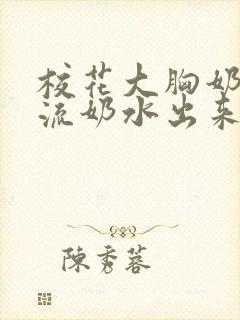 校花大胸奶
流奶水出来
陳秀蓉